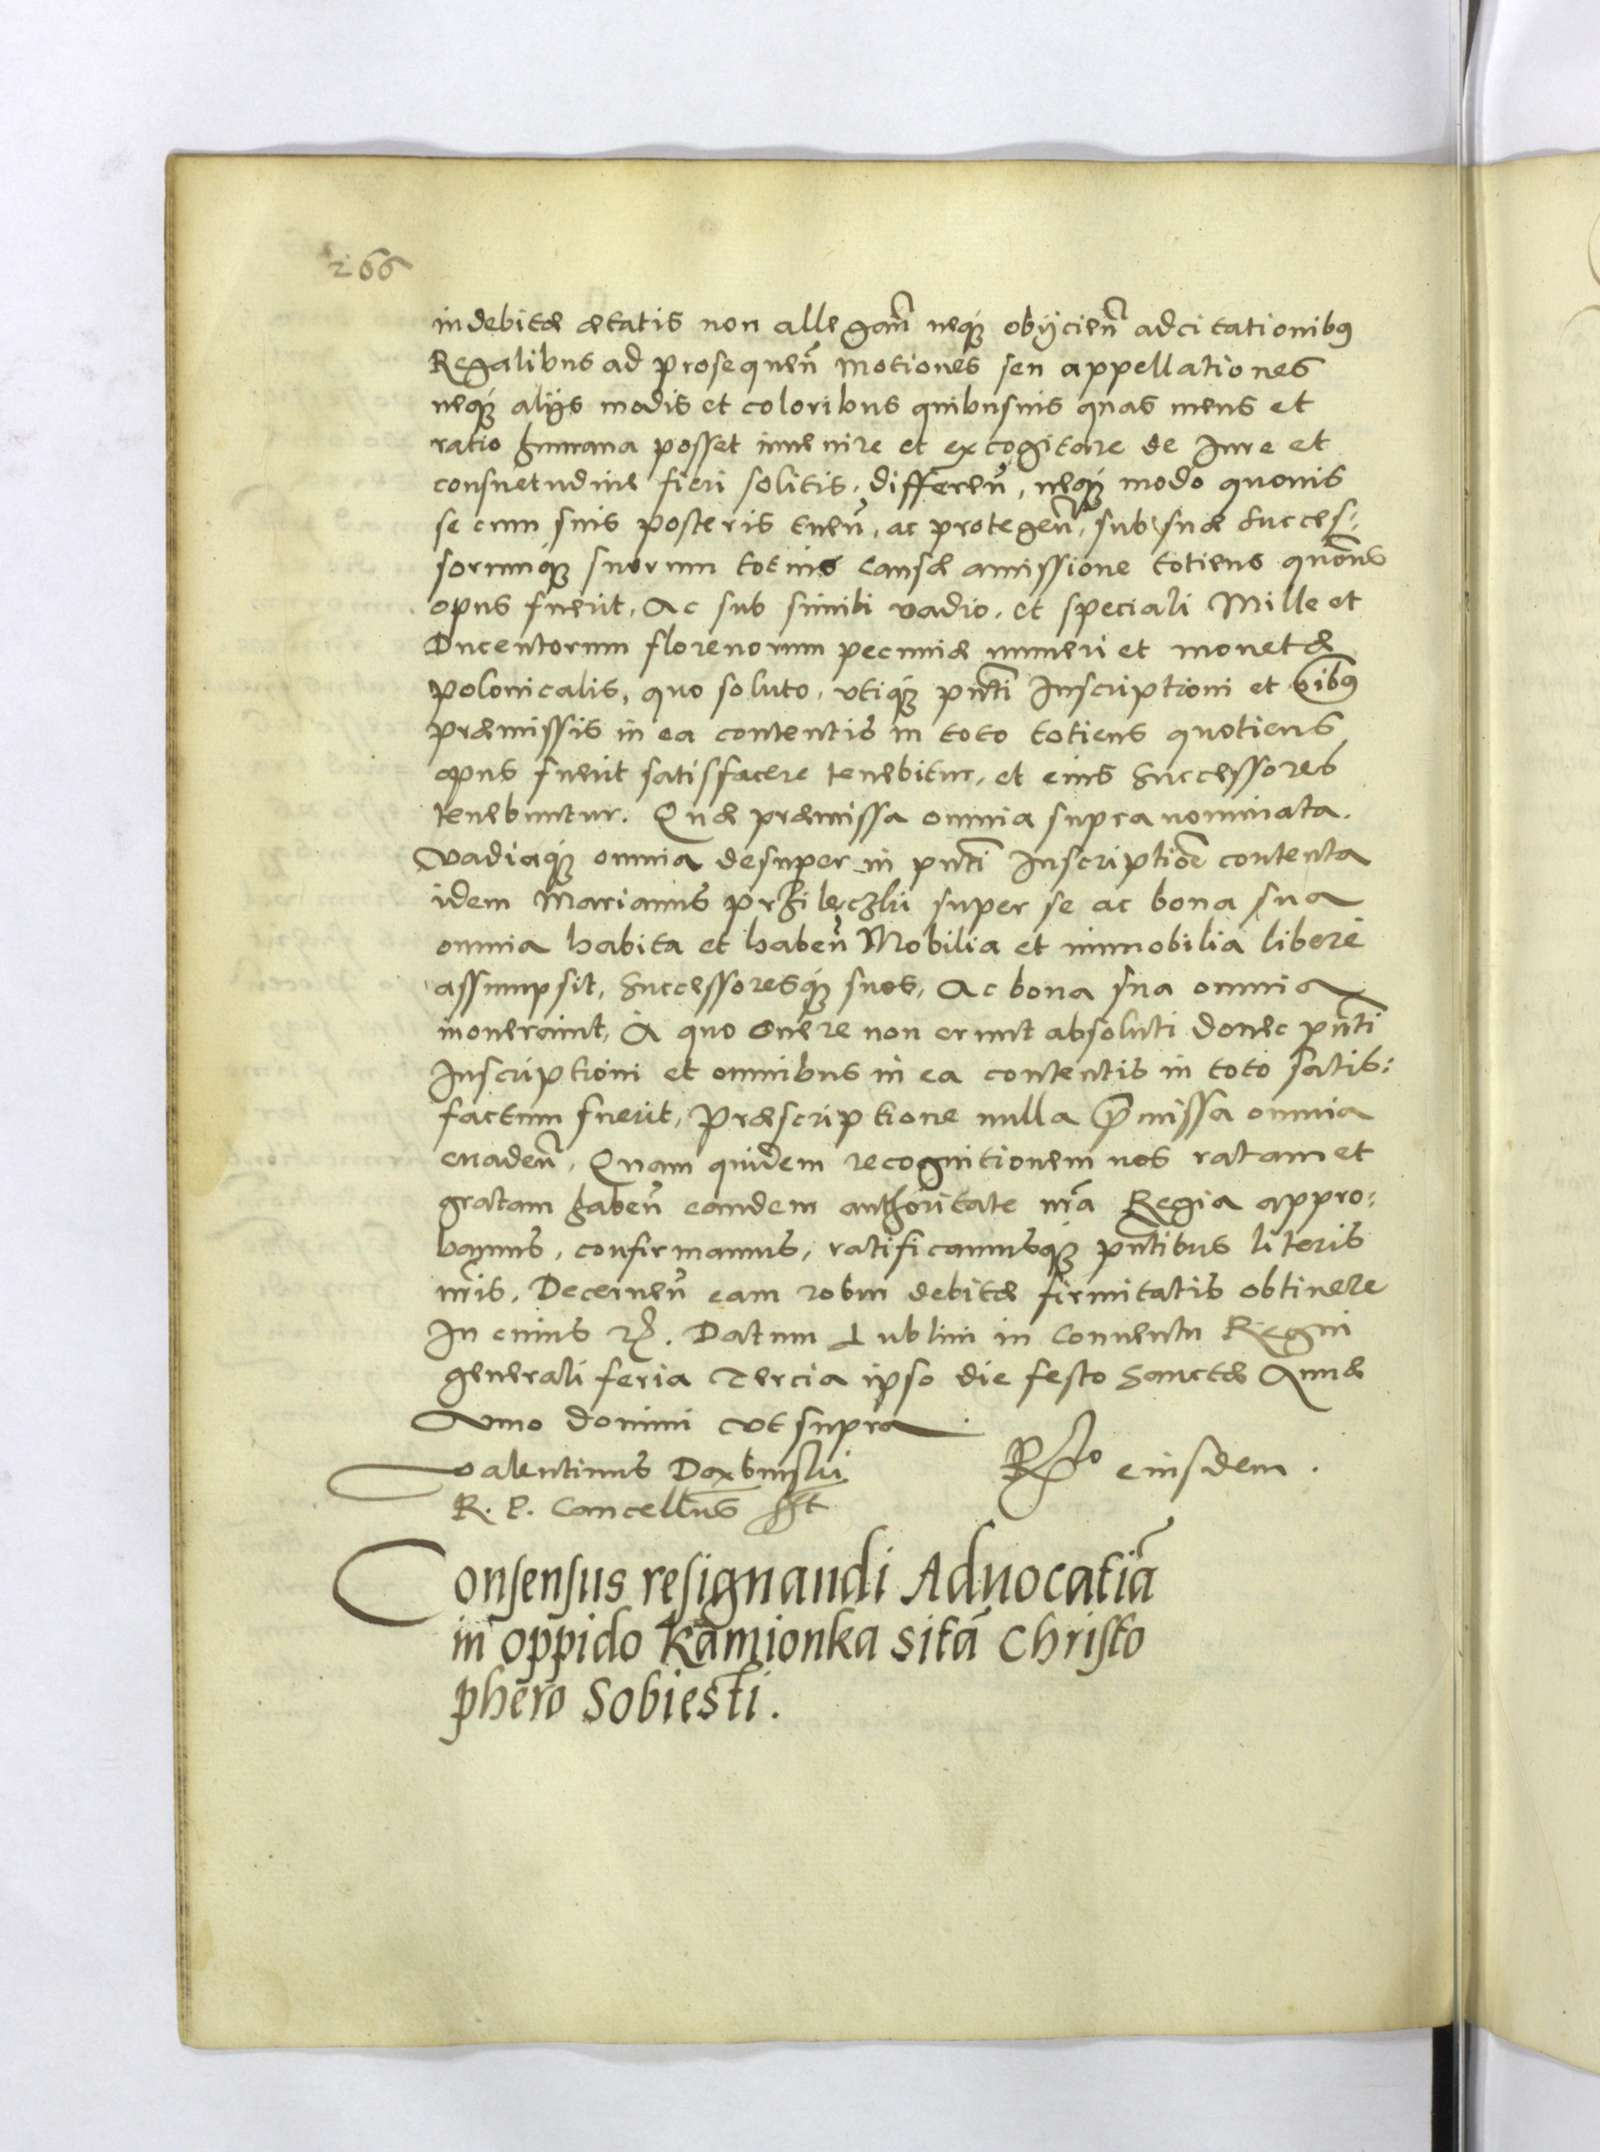 266
indebitæ ætatis non allegan̄ neq́ȝ obijcien̄ adcitationibꝰ
Regalibus ad prosequen̄ motiones seu appellationes
neq́ȝ alijs modis et coloribus quibusuis quas mens et
ratio humana posset inuenire et excogitare de Iure et
consuetudine fieri solitis, differen̄, neq́ȝ modo quouis
se cum suis posteris tuen̄, ac protegen̄, sub suæ succes-
sorumq́ȝ suorum totius causæ amissione totiens
opus fuerit, Ac sub simili vadio, et speciali Mille et
Ducentorum florenorum pecuniæ numeri et monetæ
polonicalis, quo soluto, vtiq́ȝ pn̄ti Inscriptioni et oībꝰ
præmissis in ea contentis in toto totiens quotiens
opus fuerit satisfacere tenebitur, et eius Successores
tenebuntur. Quæ præmissa omnia supra nominata.
Vadiaq́ȝ omnia desuper in pn̄ti Inscriptiōe contenta
idem Marianus Przilęczki super se ac bona sua
omnia habita et haben̄ Mobilia et immobilia liberè
assumpsit, Successoresq́ȝ suos, Ac bona sua omnia
inonerauit, A quo onere non erunt absoluti donec pn̄ti
Inscriptioni et omnibus in ea contentis in toto satis:
factum fuerit, Præscriptione nulla p̄missa omnia
euaden̄, Quam quidem recognitionem nos ratam et
gratam haben̄ eandem authoritate nr̄a Regia appro:
bamus, confirmamus, ratificamusq́ȝ pn̄tibus literis
nr̄is, Decernen̄ eam robur debitæ firmitatis obtinere
In cuius rȝ. Datum Lublini in Conuentu Regni
generali feria Tercia ipso die festo Sanctæ Annæ
Anno domini vt supra
Valentinus Dembinski Rȝto eiusdem.
R. P. Cancellarꝰ sst
Consensus resignandi Aduocatiā
in oppido Kamionka sitā Christo
phero Sobieski.